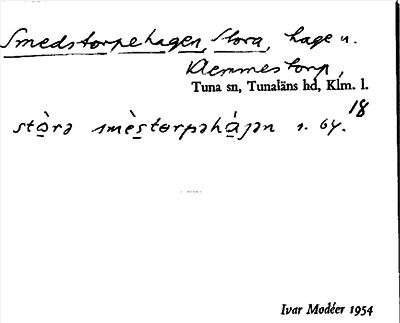 Smedstorpehagen, Stora, hage u.
Klemmestorp,
Tuna sn, Tunaläns hd, Klm. l.
18
stò̱rə smès̱tørpəhá̱jən s. 64.
Ivar Modéer 1954